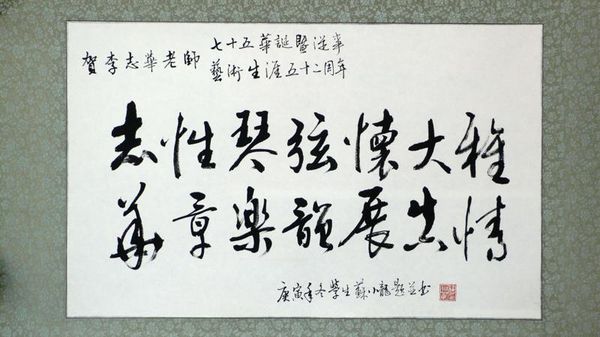 賀李志華老師
七十五華誕暨從事
藝術生涯五十二周年
志性琴弦懷大雅
華章樂韻展真情
庚寅年冬學生蘇小龍題並书